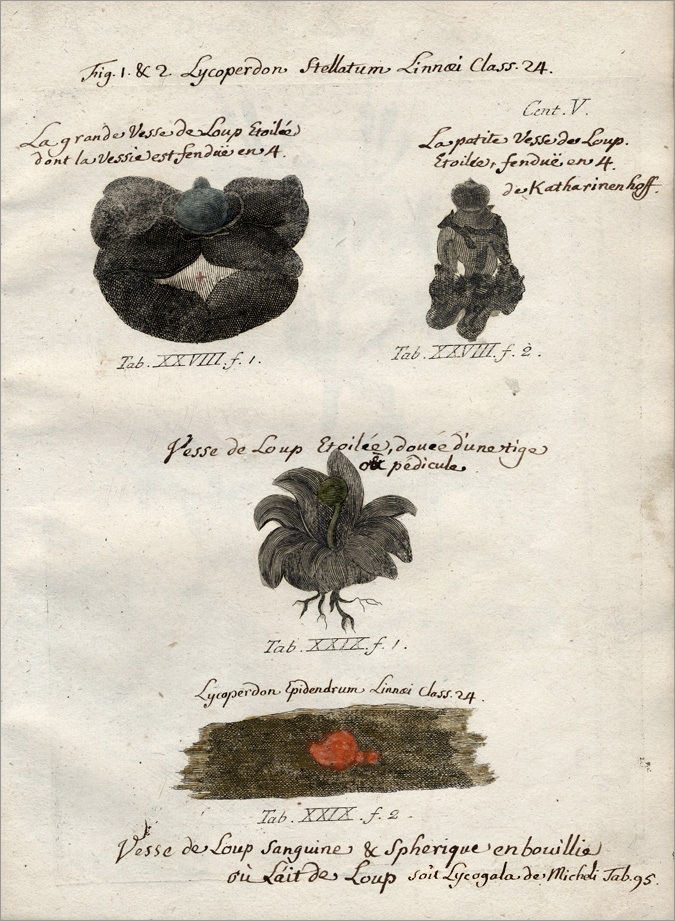 Fig. 1. & 2. Lycoperdon Stellatum Linnæi Class. 24.
Cent. V.
La grande Vesse de Loup Etoilée
dont la Vessie est fenduë en 4.
La petite Vesse de Loup.
Etoilée, fenduë en 4.
de Katharinenhoff.
Tab. XXVIII. f. 1.
Tab. XXVIII. f. 2.
Vesse de Loup Etoilée, douée d'une tige
ou pédicule
Tab. XXIX. f. 1.
Lycoperdon Epidendrum Linnæi Class. 24.
Tab. XXIX. f. 2.
Vesse de Loup Sanguine & Spherique en bouillie
où Lait de Loup soit Lycogala de Micheli Tab. 95.